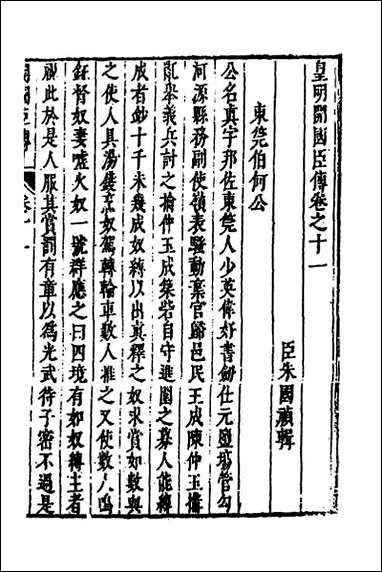 皇明開國臣傳卷之十一
臣朱國禎輯
東莞伯何公
公名真字邦佐東莞人少英偉好書劒仕元鹽塲管勾
河源縣務副使嶺表騷動棄官歸邑民王成陳仲玉搆
亂眞舉義兵討之擒仲玉成築砦自守進圍之募人能縳
成者鈔十千未幾成奴縳以出真釋之奴求賞如數與
之使人具湯鑊烹奴駕轉輪車數人推之又使數人鳴
鉦督奴妻嘘火奴一號群應之曰四境有如奴縳主者
視此於是人服其賞罰有章以為光武待子密不過是